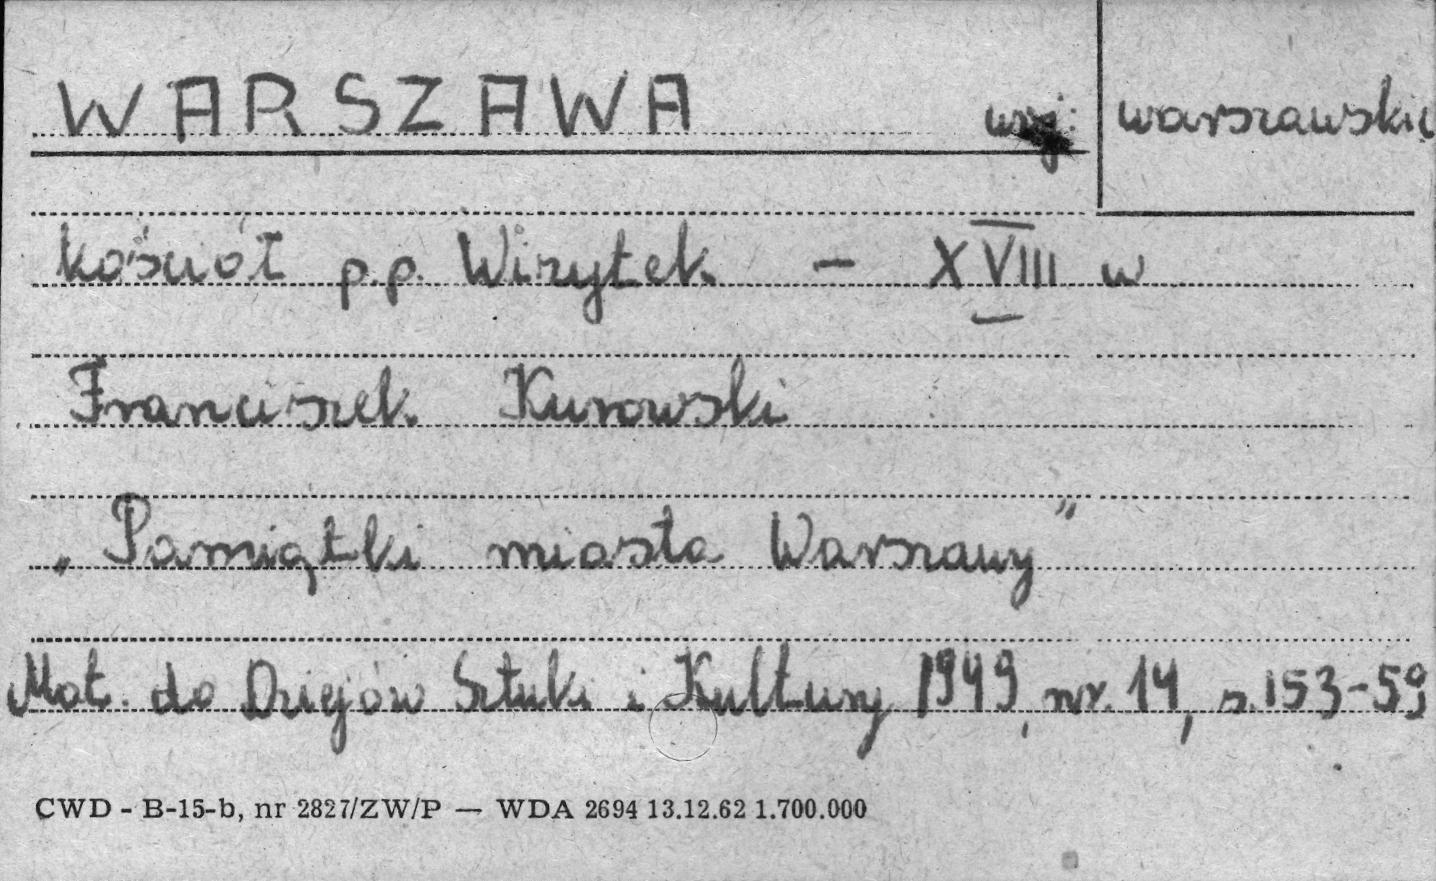 WARSZAWA woj: warszawskie
kościół p.p. Wizytek - XVIII w
Franciszek Kurowski
„Pamiątki miasta Warszawy"
Mat. do Dziejów Sztuki i Kultury 1949, nr. 14, s. 153-59
CWD - B-15-b, nr 2827/ZW/P — WDA 2694 13.12.62 1.700.000